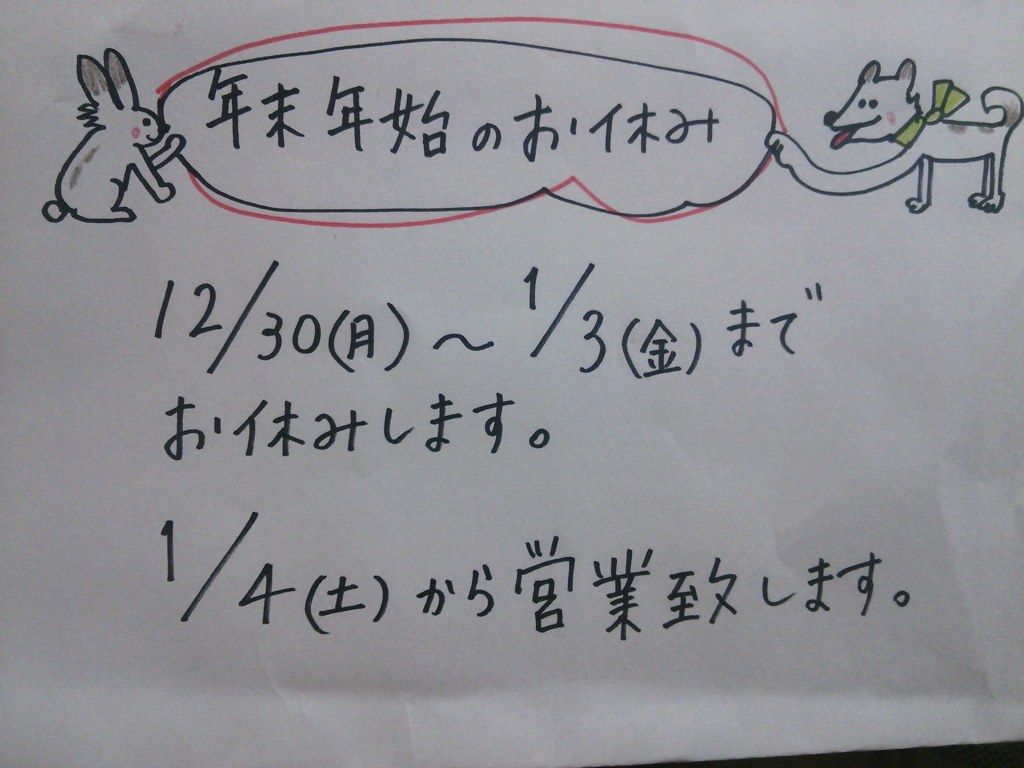 年末年始のお休み
12/30(月)～1/3(金)まで
お休みします。
1/4(土)から営業致します。